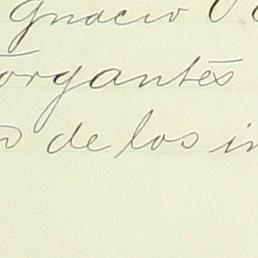 Ignacio O
organtes
o de los in